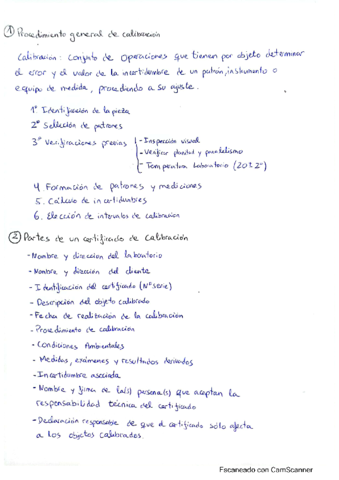 ① Procedimiento general de calibración
Calibración: Conjunto de operaciones que tienen por objeto determinar
el error y el valor de la incertidumbre de un patrón, instrumento o
equipo de medida, procediendo a su ajuste.
1º Identificación de la pieza
2º Selección de patrones
3º Verificaciones previas - Inspección visual
- Verificar planitud y paralelismo
- Temperatura Laboratorio (20±2º)
4. Formación de patrones y mediciones
5. Cálculo de incertidumbres
6. Elección de intervalos de calibración
② Partes de un certificado de calibración
- Nombre y dirección del laboratorio
- Nombre y dirección del cliente
- Identificación del certificado (Nº serie)
- Descripción del objeto calibrado
- Fecha de realización de la calibración
- Procedimiento de calibración
- Condiciones Ambientales
- Medidas, exámenes y resultados derivados
- Incertidumbre asociada
- Nombre y firma de la(s) persona(s) que aceptan la
responsabilidad técnica del certificado
- Declaración responsable de que el certificado sólo afecta
a los objetos calibrados.
Escaneado con CamScanner